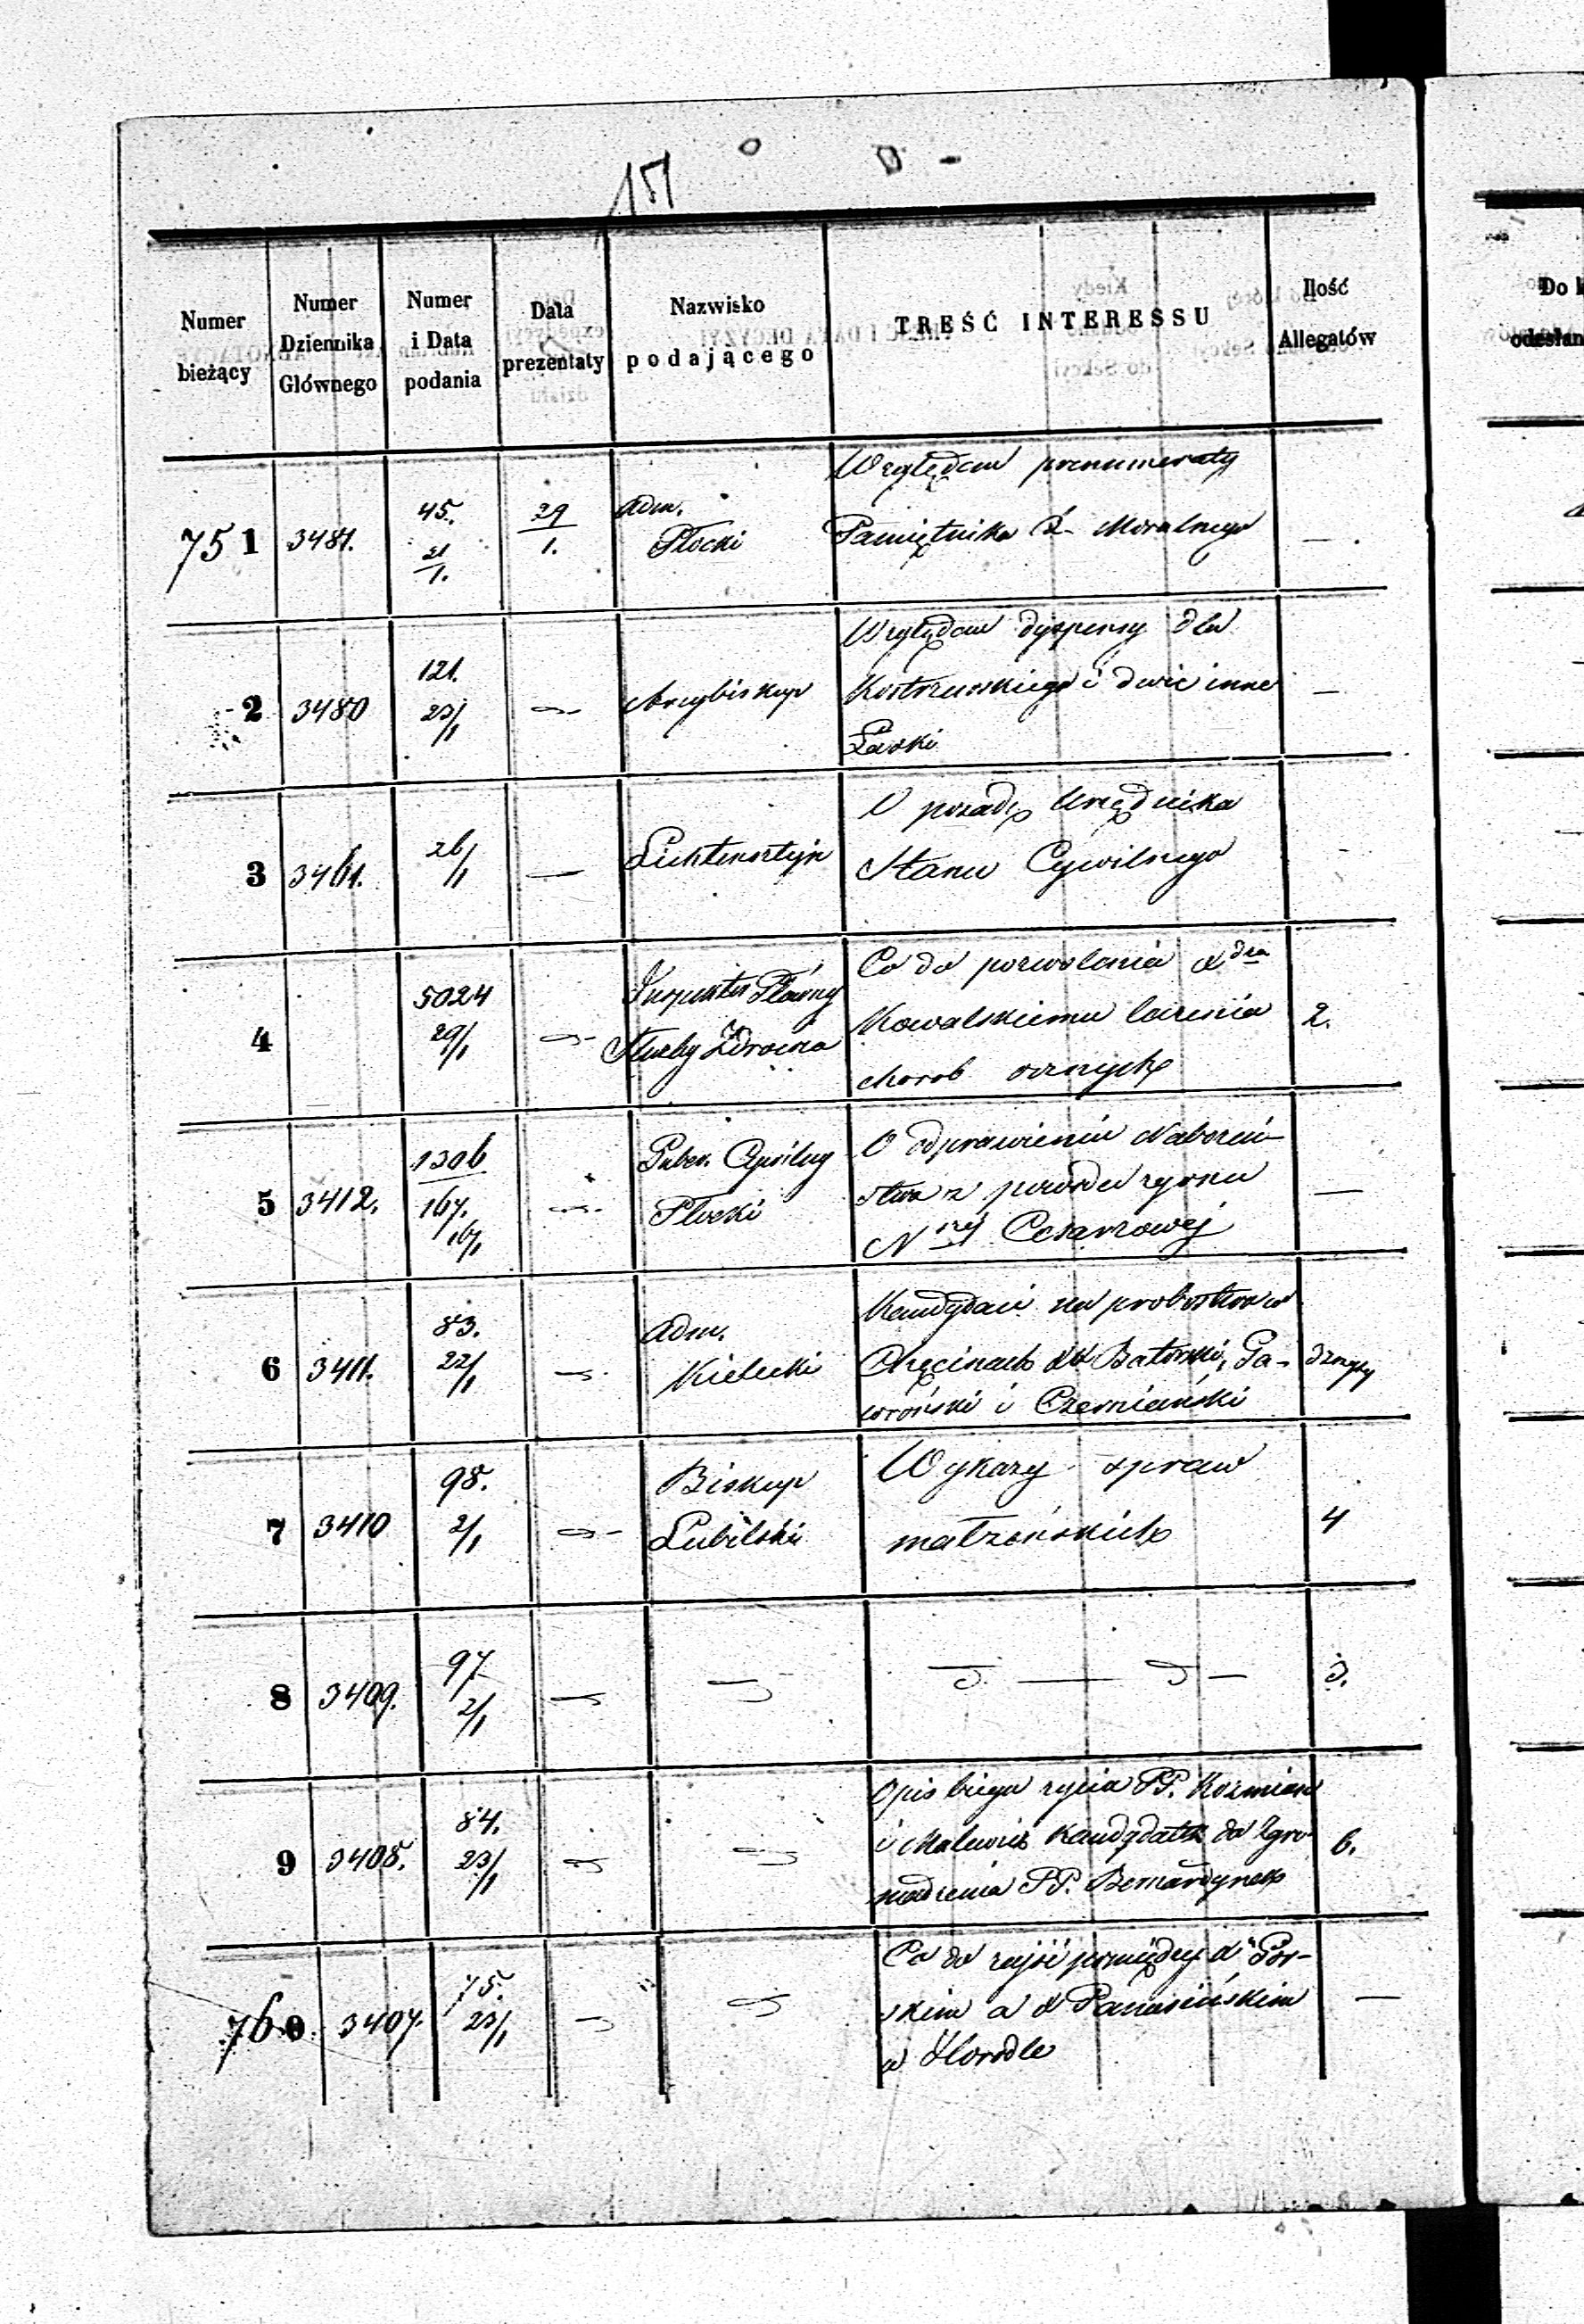 151
Numer
bieżący
Numer
Dziennika
Głównego
Numer
i Data
podania
Data
prezentaty
Nazwisko
podającego
TREŚĆ INTERESSU
Ilość
Allegatów
751 3481. 45. 21/1. 29/1. Adm. Płocki
Względem prenumeraty
Pamiętnika R. Moralnego —
2 3480 121. 23/1 Arcybiskup
Względem dyspensy dla
Kostrzewskiego i dwie inne —
Łaski
3 3461. 26/1 — Lichtensztejn
O posadę Urzędnika
Stanu Cywilnego
4 5024 29/1 Inspektor Główny
Służby Zdrowia
Co do pozwolenia X dza
Kowalskiemu leczenia 2.
chorob ocznych
5 3412. 1306 167. 16/1 Guber. Cywilny
Płocki
O odprawieniu Nabożeń-
stwa z powodu zgonu —
N szej Cesarzowej
6 3411. 83. 22/1 Adm.
Kielecki
Kandydaci na probostwo w
Chęcinach XX Batorski, Ga-
wroński i Czerniański
7 3410 98. 2/1 Biskup
Lubelski
Wykazy spraw
małżeńskich 4
8 3409. 97. 2/1 3.
9 3408. 84. 23/1
Opis biegu życia PP. Kozmian
i Malewicz kandydatek do Zgro-
madzenia PP. Bernardynek 6.
760 3407. 75. 23/1
Co do zajść pomiędzy X Gór-
skim a X Panasińskim —
w Horodle
Do k
odesłan